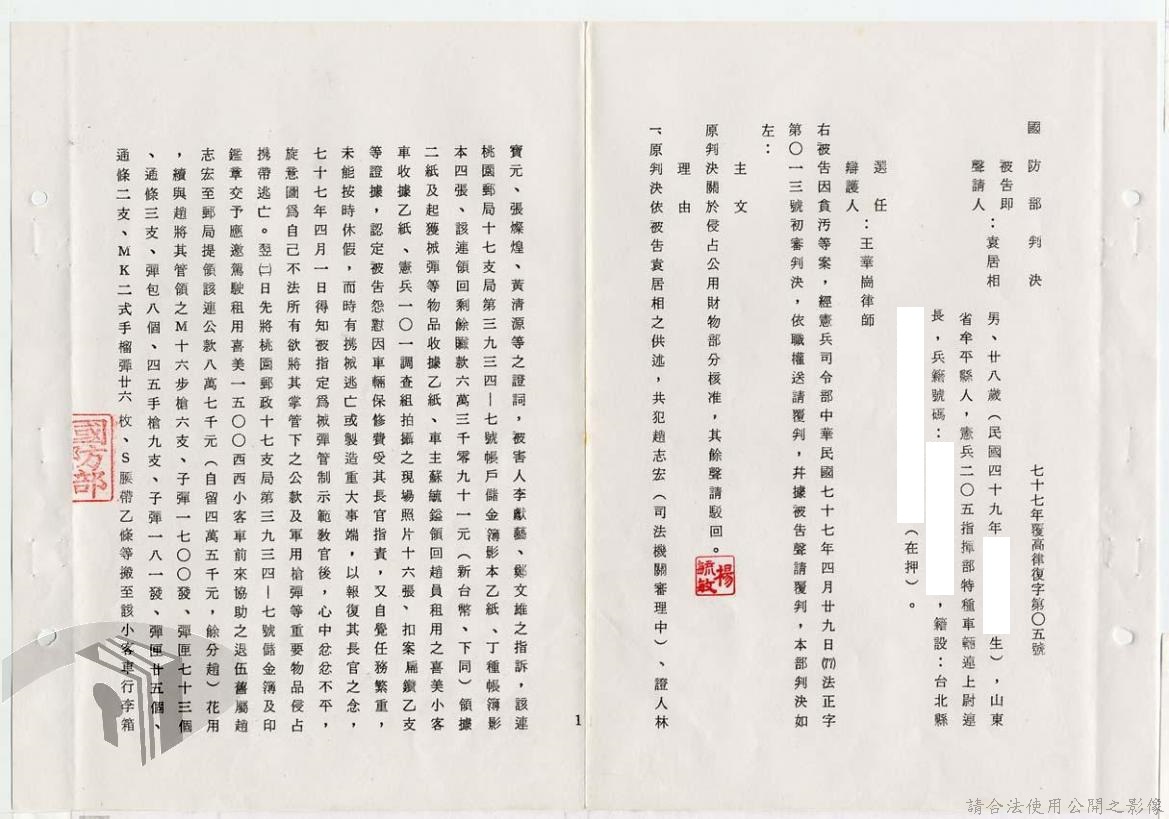 國防部判決
七十七年覆高律復字第〇五號
被告即
聲請人：袁居相
男、廿八歲（民國四十九年
生），山東
省牟平縣人，憲兵二〇五指揮部特種車輛連上尉連
長，兵籍號碼：
，籍設：台北縣
（在押）。
選任
辯護人：王華崗律師
右被告因貪污等案，經憲兵司令部中華民國七十七年四月廿九日(77)法正字
第〇一三號初審判決，依職權送請覆判，幷據被告聲請覆判，本部判決如
左：
主文
原判決關於侵占公用財物部分核准，其餘聲請駁回。
楊毓敏
理由
一、原判決依被告袁居相之供述，共犯趙志宏（司法機關審理中）、證人林
1
寶元、張燦煌、黃淸源等之證詞，被害人李獻藝、鄭文雄之指訴，該連
桃園郵局十七支局第三九三四－七號帳戶儲金簿影本乙紙、丁種帳簿影
本四張、該連領回剩餘贓款六萬三千零九十一元（新台幣、下同）領據
二紙及起獲械彈等物品收據乙紙、車主蘇毓鎰領回趙員租用之喜美小客
車收據乙紙、憲兵一〇一調查組拍攝之現場照片十六張、扣案扁鑽乙支
等證據，認定被告怨懟因車輛保修費受其長官指責，又自覺任務繁重，
未能按時休假，而時有携械逃亡或製造重大事端，以報復其長官之念，
七十七年四月一日得知被指定爲械彈管制示範敎官後，心中忿忿不平，
旋意圖爲自己不法所有欲將其掌管下之公款及軍用槍彈等重要物品侵占
携帶逃亡。翌㈡日先將桃園郵政十七支局第三九三四－七號儲金簿及印
鑑章交予應邀駕駛租用喜美一五〇〇西西小客車前來協助之退伍舊屬趙
志宏至郵局提領該連公款八萬七千元（自留四萬五千元，餘分趙）花用
，續與趙將其管領之M十六步槍六支、子彈一七〇〇發、彈匣七十三個
、通條三支、彈包八個、四五手槍九支、子彈一八一發、彈匣廿五個、
通條二支、MK二式手榴彈廿六枚、S腰帶乙條等搬至該小客車行李箱
國防部
請合法使用公開之影像